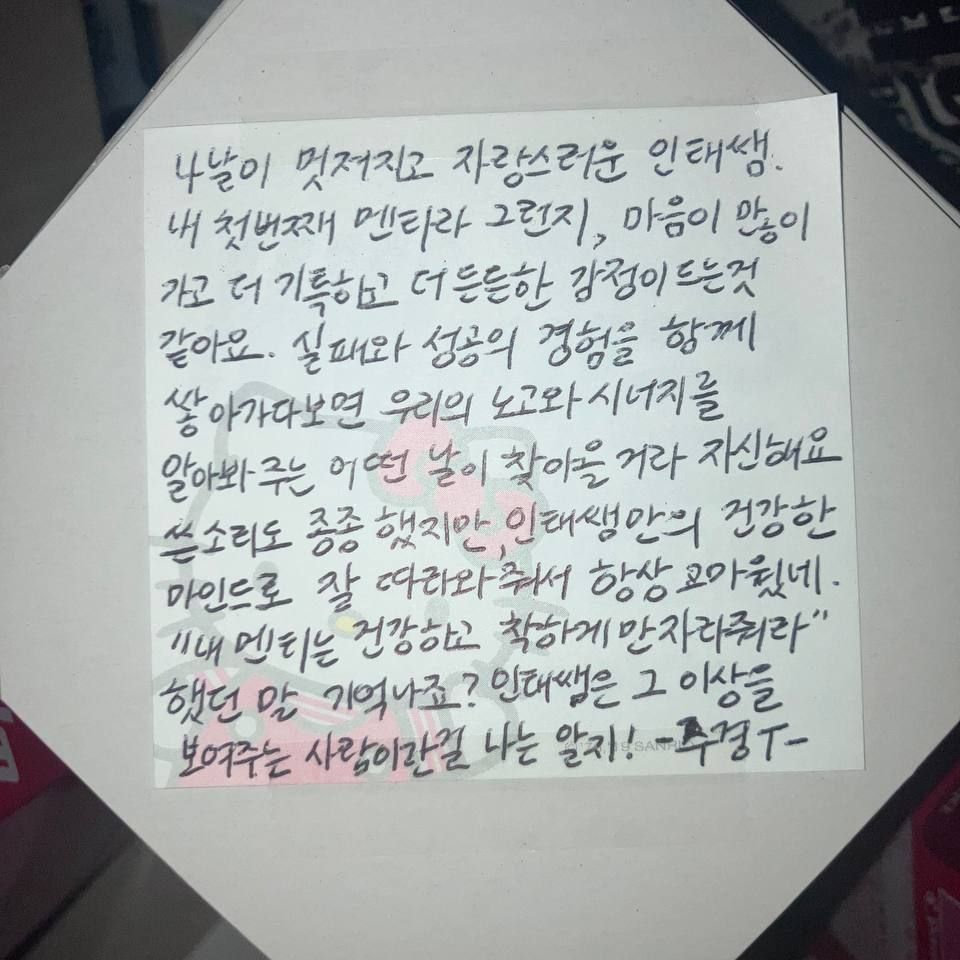 나날이 멋져지고 자랑스러운 인태쌤.
내 첫번째 멘티라 그런지, 마음이 많이
가고 더 기특하고 더 든든한 감정이 드는것
같아요. 실패와 성공의 경험을 함께
쌓아가다보면 우리의 노고와 시너지를
알아봐 주는 어떤 날이 찾아올 거라 자신해요
쓴소리도 종종 했지만, 인태쌤만의 건강한
마인드로 잘 따라와줘서 항상 고마웠네.
"내 멘티는 건강하고 착하게만 자라줘라"
했던 말 기억나죠? 인태쌤은 그 이상을
보여주는 사람이란걸 나는 알지! -주경T-